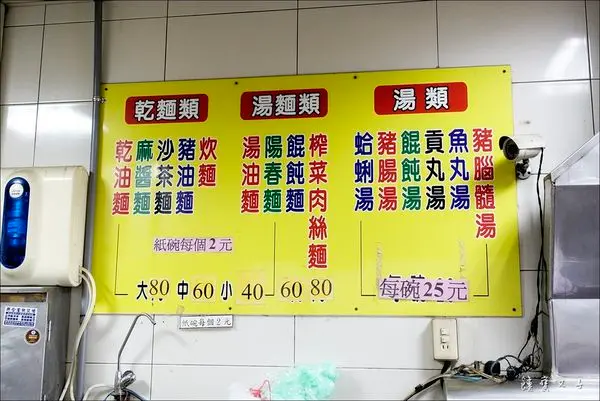 乾麵類
乾油麵
麻醬麵
沙茶麵
豬油麵
炊麵
湯麵類
湯油麵
陽春麵
餛飩麵
榨菜肉絲麵
湯類
蛤蜊湯
豬腸湯
餛飩湯
貢丸湯
魚丸湯
豬腦髓湯
紙碗每個2元
大80中60小40 60 80
每碗25元
紙碗每個2元